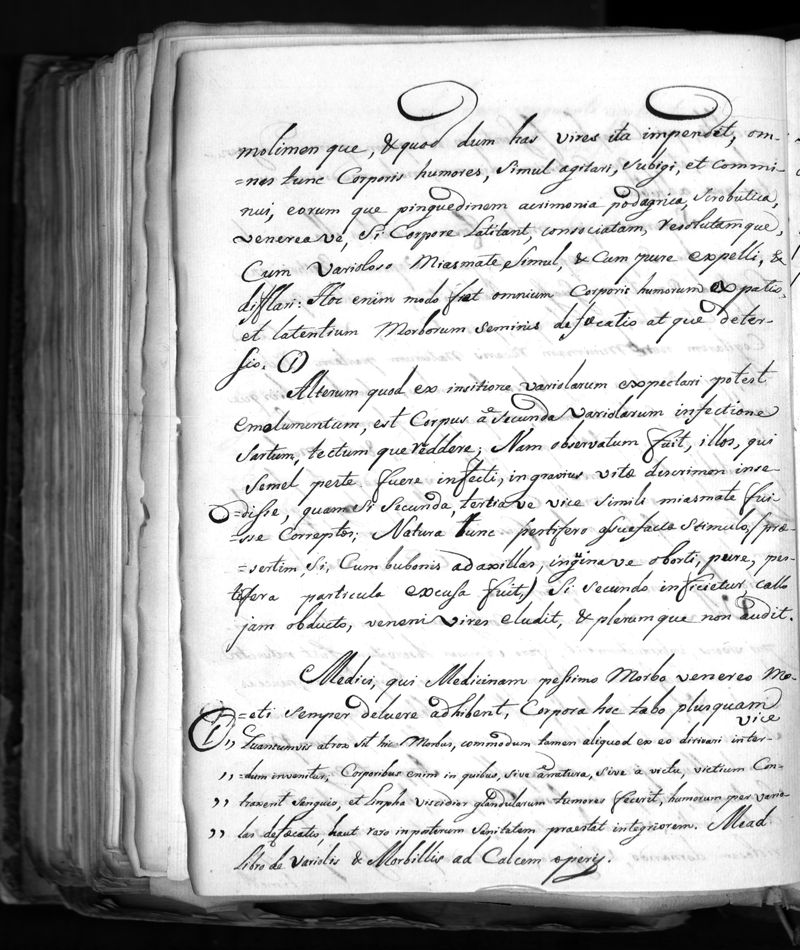 molimen que, & quod dum has vires ita impendet, om-
=nes tunc Corporis humores, simul agitari, subigi, et commi-
nui, eorum que pinguedinem acrimonia podagrica, Scrobutica,
venerea ve, Si Corpore latitant, consociatam, resolutamque,
Cum Varioloso Miasmate Simul, & Cum pure expelli, &
difflari: Hoc enim modo fiet omnium Corporis humorum expatio,
et latentium Morborum Seminis defœcatio at que deter-
sio. (1)
Alterum quod ex insitione variolarum expectari potest
emolumentum, est Corpus â secunda variolarum infectione
Sartum, tectum que reddere; Nam observatum fuit, illos, qui
Semel peste fuere infecti, in gravius vitæ discrimen inse-
=disse, quam Si Secunda, tertia ve vice simili miasmate fui-
=sse Correptos; Natura tunc pestifero assuefacta Stimulo, (præ-
=sertim, Si, Cum bubonis ad axillas, inguina ve oborti, pure, pes-
tifera particula excusa fuit,) Si secundo inficietur, callo
jam obducto, veneni vires eludit, & plerumque non audit.
Medici, qui Medicinam pessimo Morbo venereo Me-
=eti Semper deluere adhibent, Corpora hoc tabo plusquam
vice
(1) „ Quantumvis atrox sit hic Morbus, commodum tamen aliquod ex eo dirivari inter-
„ =dum invenitur; Corporibus enim in quibus, sive â natura, sive â victu, victium Con-
„ traxent Sanguis, et limpha viscidior glandularum tumores fecerit, humorum per vario-
„ las defœcatis, haut raro in posterum Sanitatem praestat integriorem. Mead
Libro de Variolis & Morbillis ad Calcem operis.